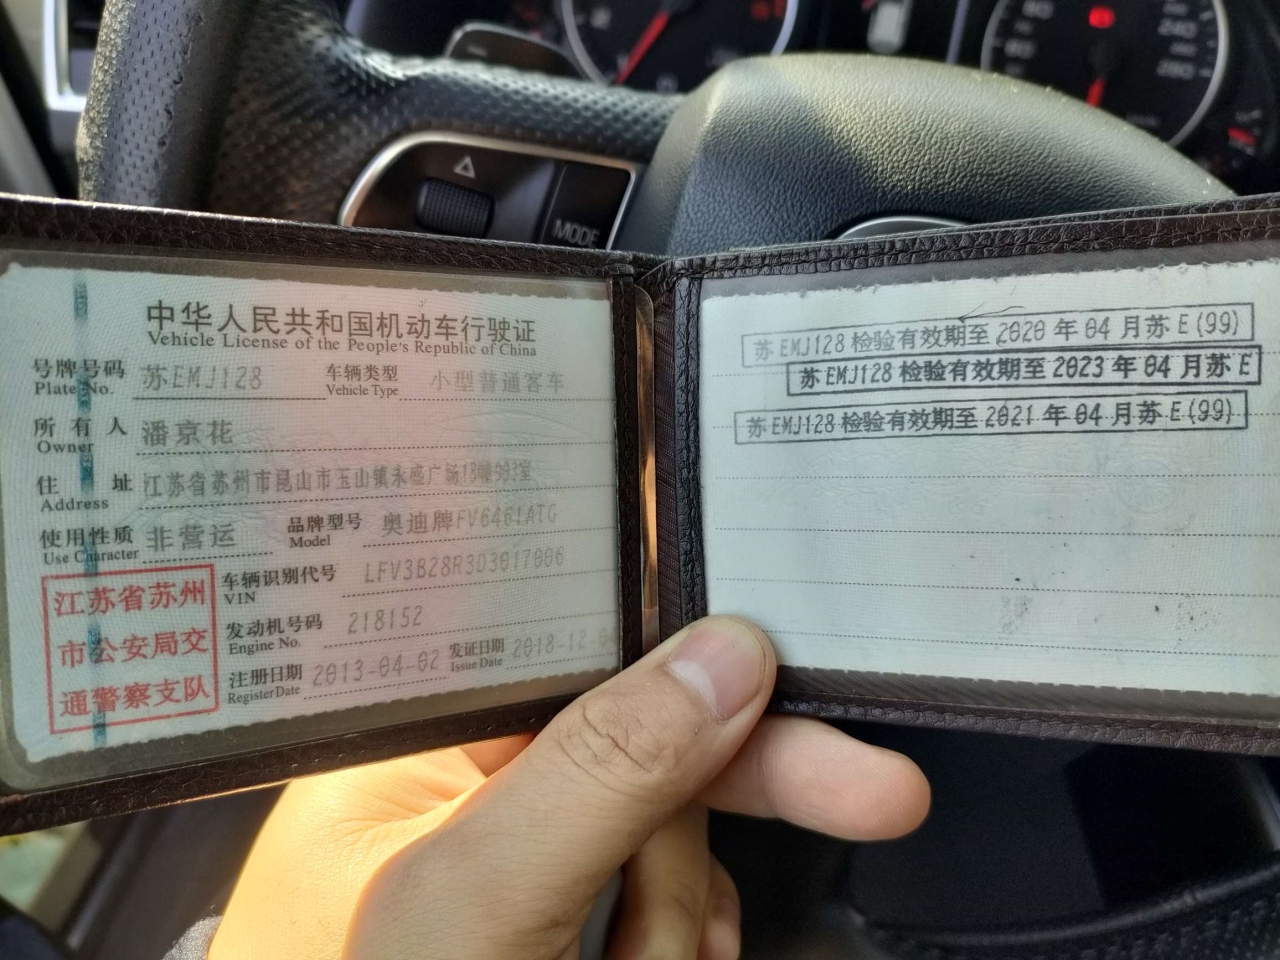 MODE
中华人民共和国机动车行驶证
Vehicle License of the People's Republic of China
号牌号码 苏EMJ128 车辆类型 小型普通客车
Plate No. Vehicle Type
所有人 潘京花
Owner
住址 江苏省苏州市昆山市玉山镇永盛广场18幢903室
Address
使用性质 非营运 品牌型号 奥迪牌FV6461ATG
Use Character Model
江苏省苏州
市公安局交
通警察支队
车辆识别代号 LFV3B28R3D3017006
VIN
发动机号码 218152
Engine No.
注册日期 2013-04-02 发证日期 2018-12-0
Register Date Issue Date
苏EMJ128检验有效期至2020年04月苏E(99)
苏EMJ128检验有效期至2023年04月苏E
苏EMJ128检验有效期至2021年04月苏E(99)